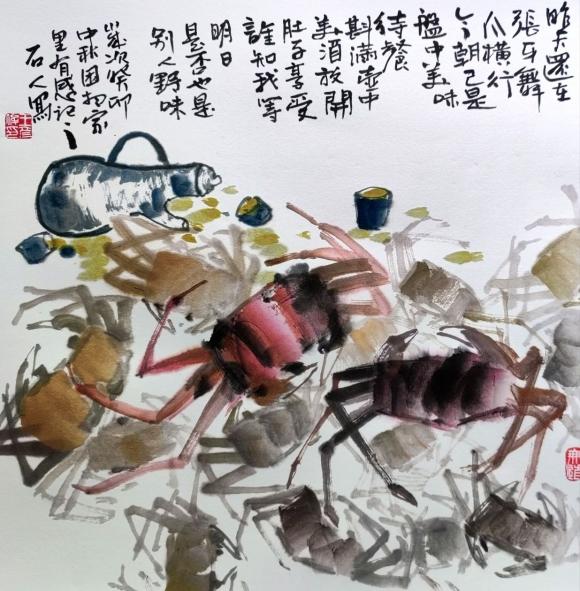 昨天還在
張牙舞
爪橫行
今朝已是
盤中美味
待餐
斟滿壺中
美酒放開
肚子享受
誰知我等
明日
是否也是
别人野味
歲次癸卯
中秋困扵家
里有感記之
石人寫